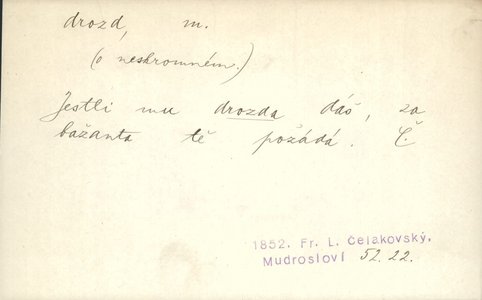 drozd, m.
(o neskromném.)
Jestli mu drozda dáš, za
bažanta tě požádá. Č.
1852. Fr. L. Čelakovský,
Mudrosloví 52. 22.